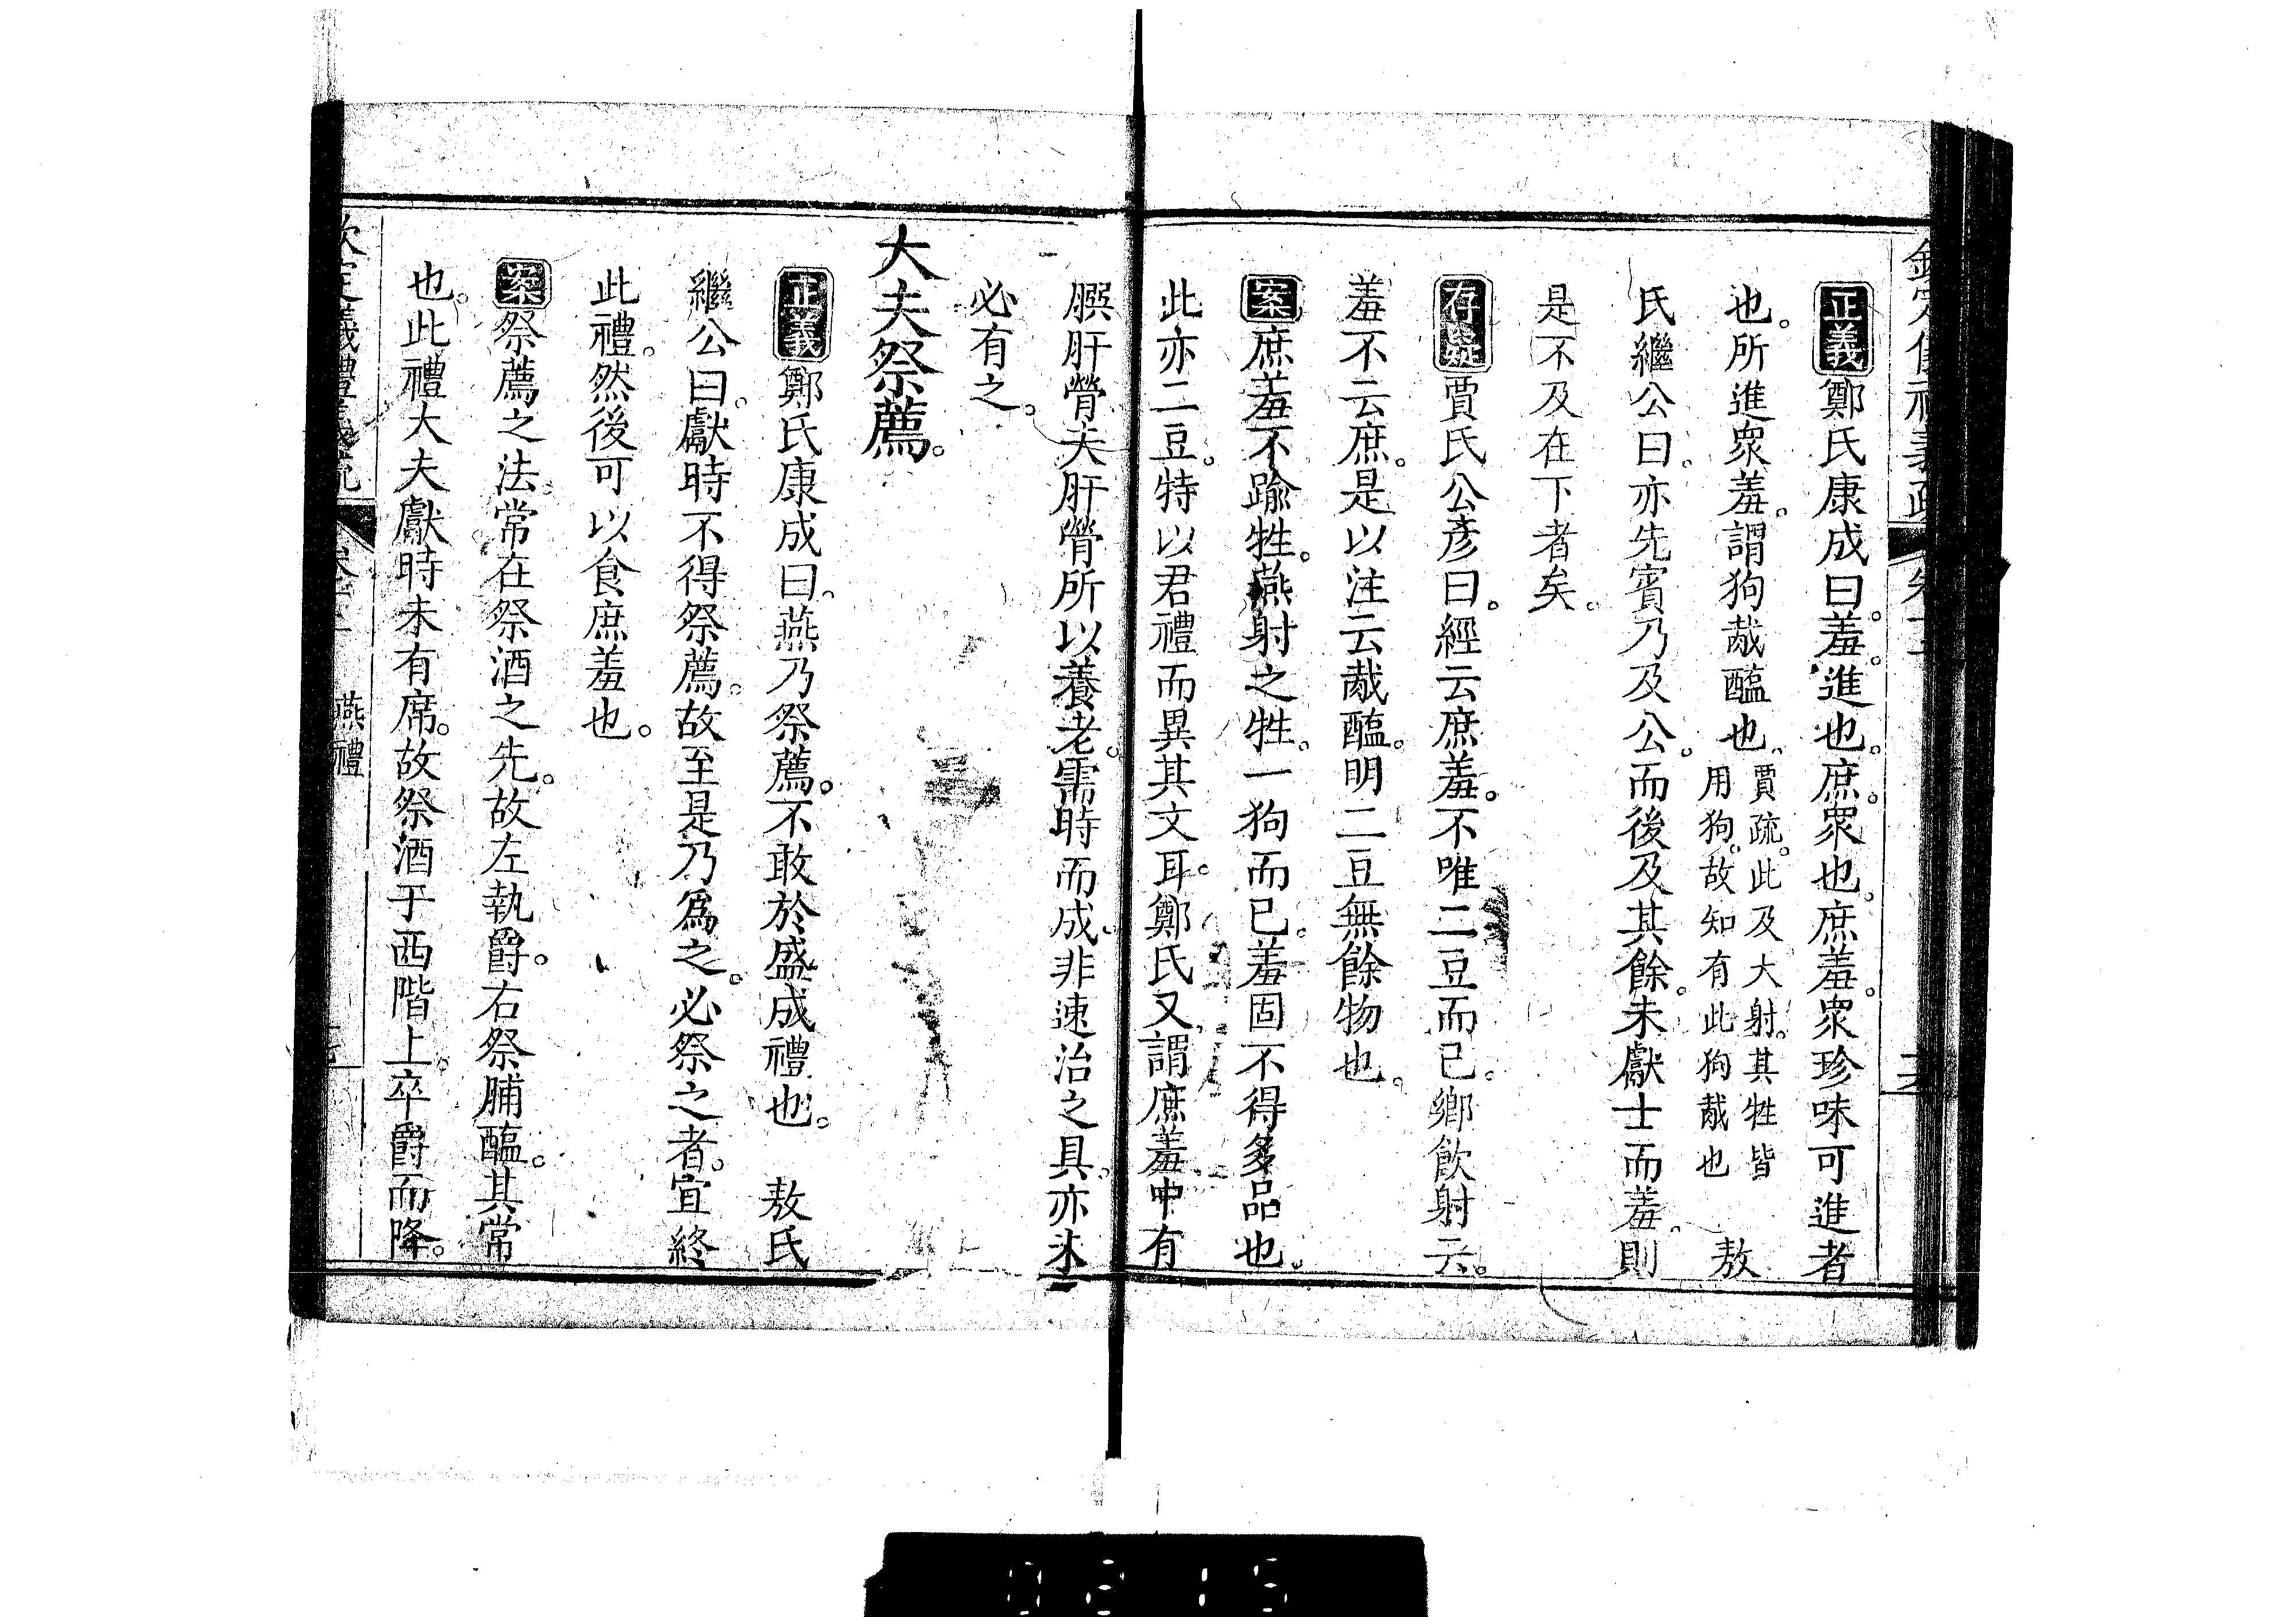 正義鄭氏康成曰。羞。進也。庶。眾也。庶羞。眾珍味可進者
也。所進眾羞。謂狗胾醢也。賈疏。此及大射。其牲皆用狗。故知有此狗胾也 敖
氏繼公曰。亦先賓乃及公。而後及其餘。未獻士而羞。則
是不及在下者矣。
存疑賈氏公彥曰。經云庶羞。不唯二豆而已。鄉飲射云。
羞不云庶。是以注云胾醢。明二豆無餘物也。
案庶羞不踰牲。燕射之牲。一狗而已。羞固不得多品也。
此亦二豆。特以君禮而異其文耳。鄭氏又謂庶羞中有
膷肝膋。夫肝膋所以養老。需時而成。非速治之具。亦未
必有之。
大夫祭薦。
正義鄭氏康成曰。燕乃祭薦。不敢於盛成禮也。 敖氏
繼公曰。獻時不得祭薦。故至是乃為之。必祭之者。宜終
此禮。然後可以食庶羞也。
案祭薦之法。常在祭酒之先。故左執爵。右祭脯醢。其常
也。此禮大夫獻時未有席。故祭酒于西階上。卒爵而降。
欽定儀禮義疏
燕禮